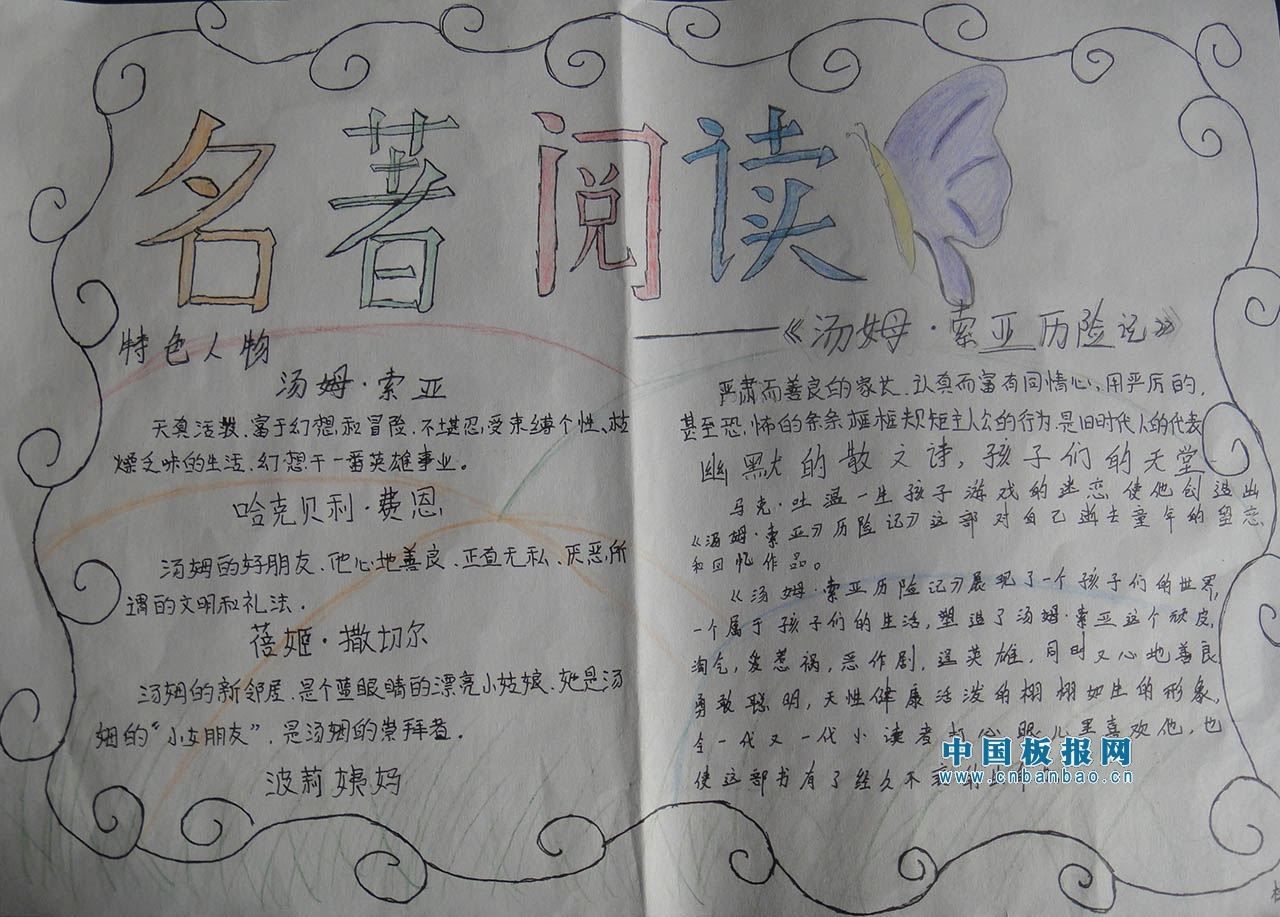 名著阅读
——《汤姆·索亚历险记》
特色人物
汤姆·索亚
天真活泼、富于幻想和冒险、不堪忍受束缚个性、枯
燥乏味的生活、幻想干一番英雄事业。
哈克贝利·费恩
汤姆的好朋友、他心地善良、正直无私、厌恶所
谓的文明和礼法.
蓓姬·撒切尔
汤姆的新邻居、是个蓝眼睛的漂亮小姑娘、她是汤
姆的“小女朋友”,是汤姆的崇拜者.
波莉姨妈
严肃而善良的家长、认真而富有同情心,用严厉的,
甚至恐怖的条条框框规矩主人公的行为.是旧时代人的代表
幽默的散文诗,孩子们的天堂
马克·吐温一生孩子游戏的迷恋使他创造出
《汤姆·索亚》历险记》这部对自己逝去童年的留恋
和回忆作品。
《汤姆·索亚历险记》展现了一个孩子们的世界,
一个属于孩子们的生活,塑造了汤姆·索亚这个顽皮,
淘气,爱惹祸,恶作剧,逞英雄,同时又心地善良
勇敢聪明,天性健康活泼的栩栩如生的形象,
令一代又一代小读者打心眼儿里喜欢他,也
使这部书有了经久不衰
中国板报网
www.cnbanbao.cn